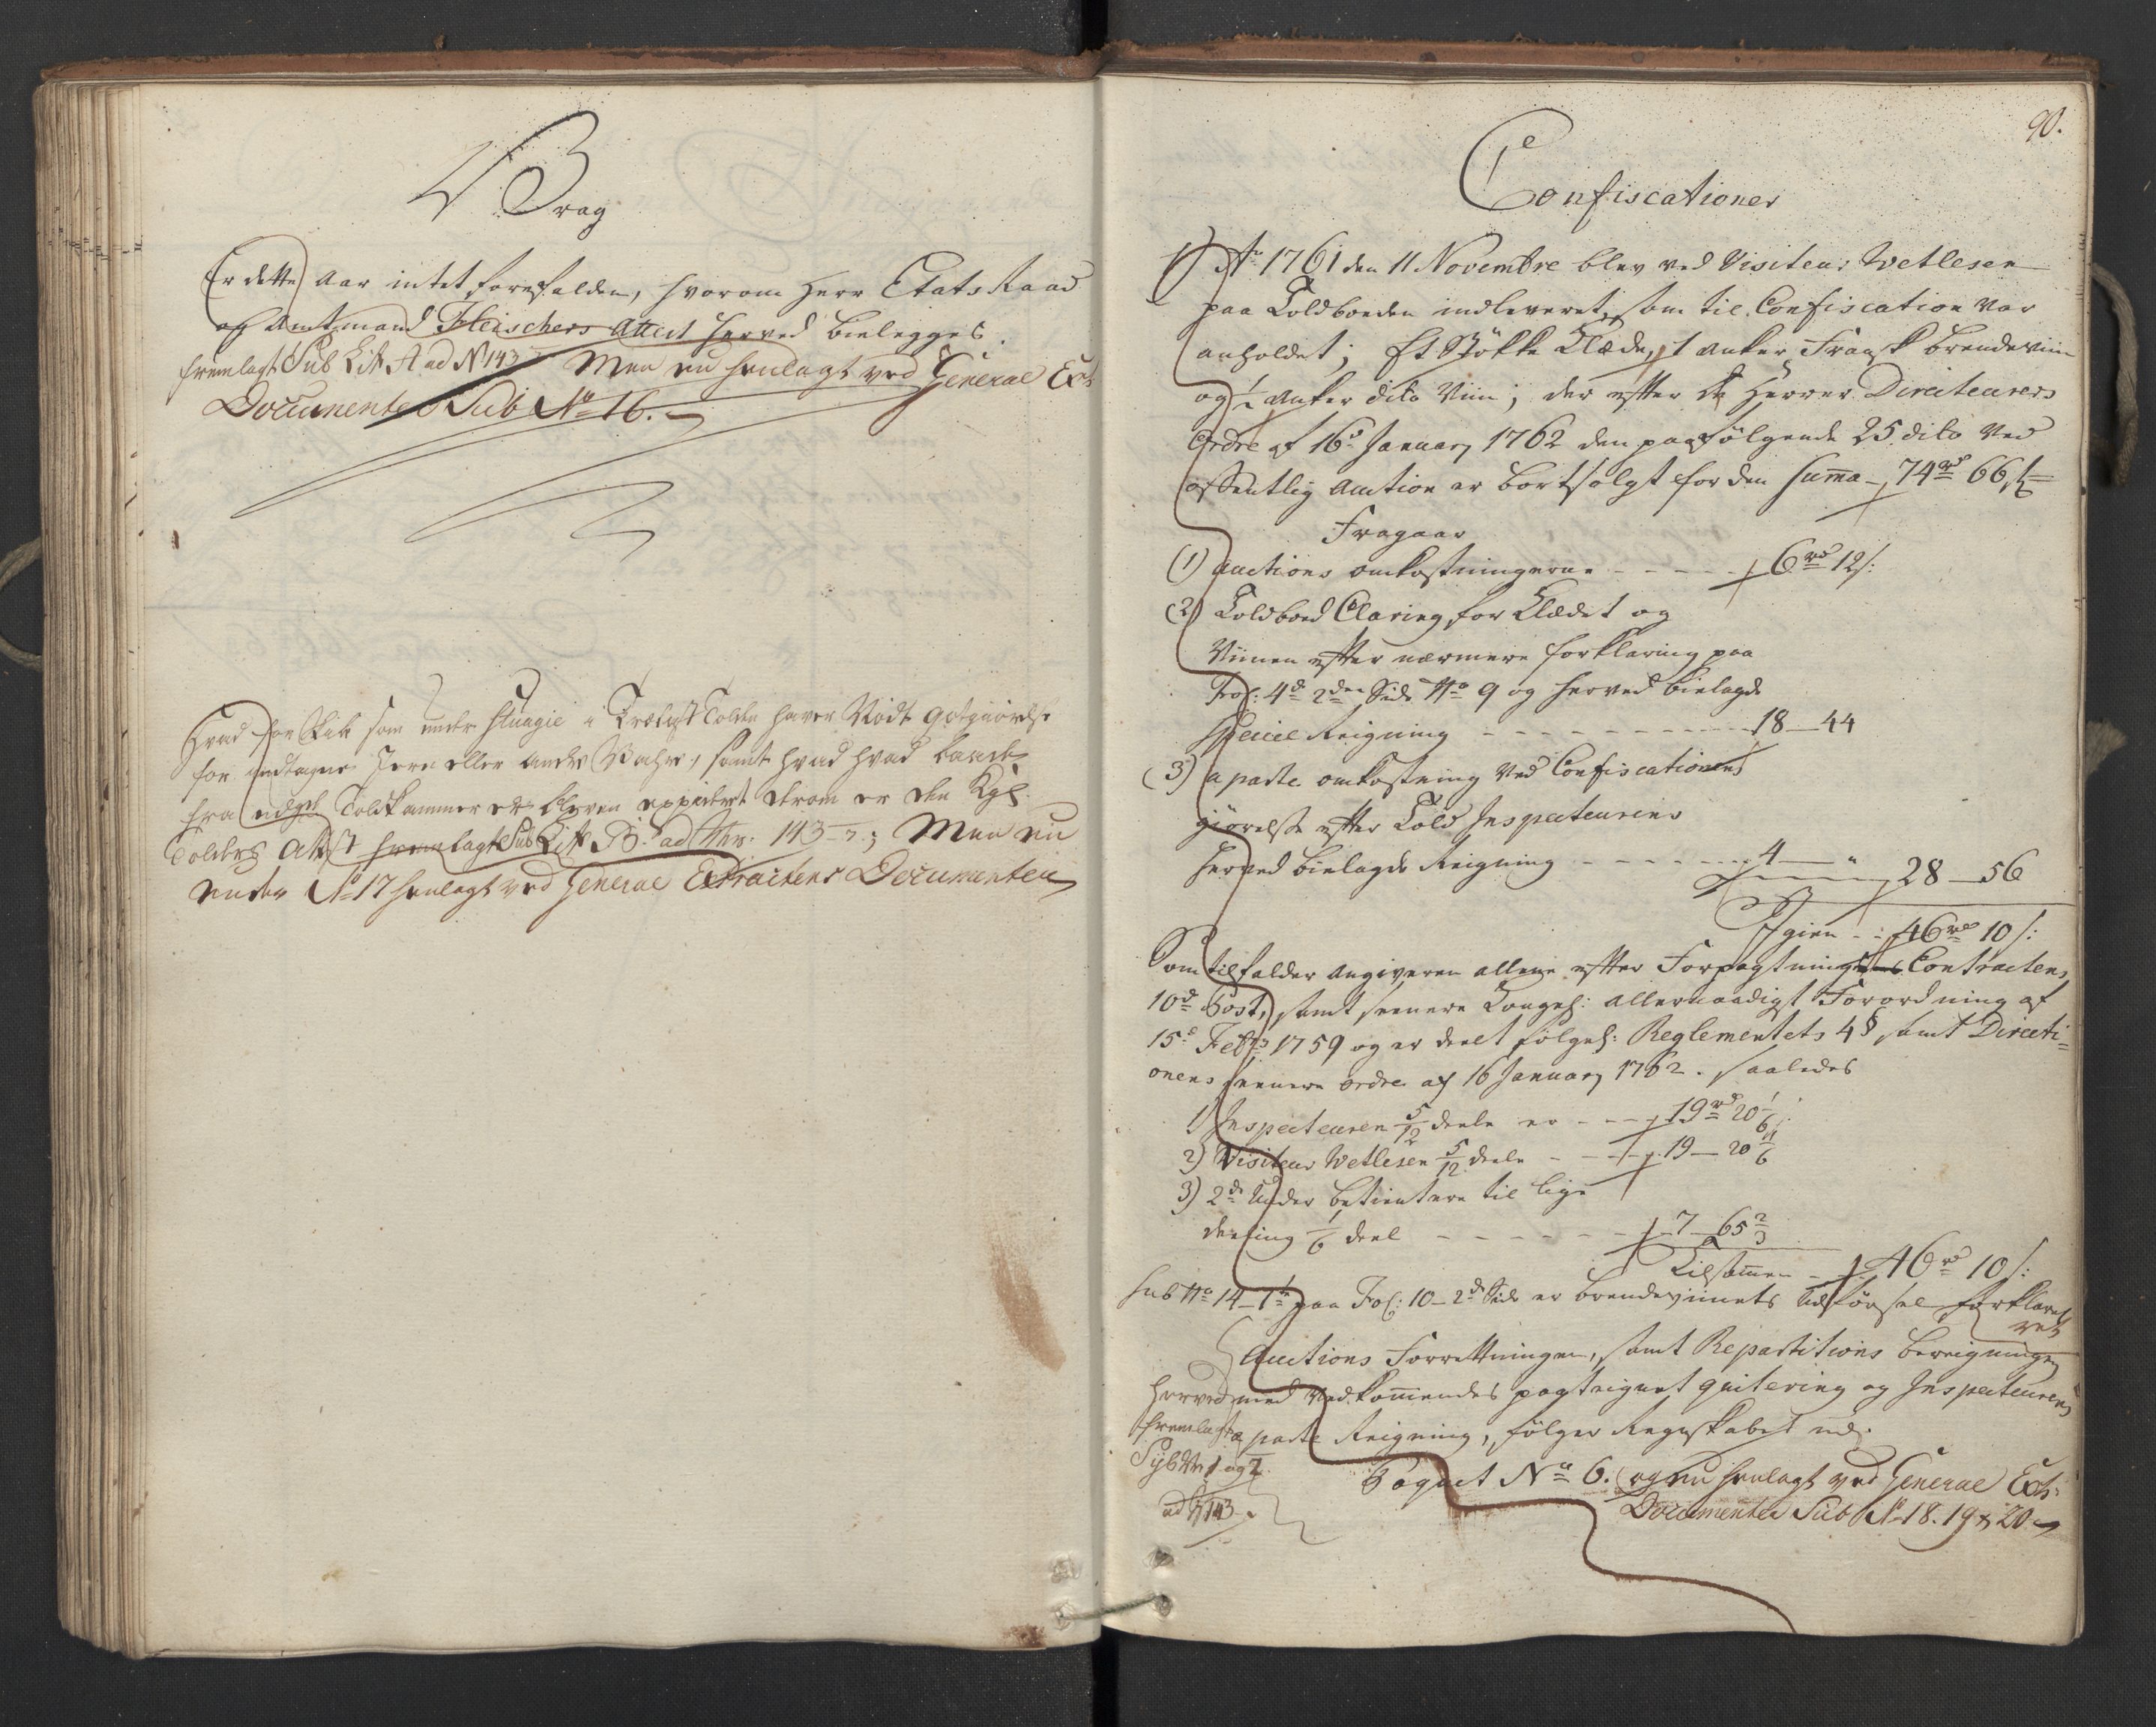 Vrag
Er dette Aar intet forefalden, hvorom Herr Etats Raad
og Amtmand Fleischers Attest herved bielegges.
fremlagt Sub Litr A ad No 143 Men nu henlagt ved General Ext:
Documenter Sub No 16.
Hvad for Skib som under i Trælast Tolden haver Nödt Godtgiörelse
for indtagne Jern eller andre Vahre, samt hvad hvad
fra Toldkammer er bleven expederet derom er den Kgl.
Tolders Attest fremlagt Sub Litr B. ad No. 143; Men nu
under No 17 henlagt ved General Extractens Documenter
90.
Confiscationer
1) Ao 1761 den 11 Novembre blev ved Visiteur Wetlesen
paa Toldboeden indleveret, som til Confiscation var
anholdet; Et Stökke Klæde, 1 Anker Fransk Brendeviin
og ½ Anker dito Viin; der efter De Herrer Directeurers
Ordre af 16d January 1762 den paafölgende 25 dito ved
offentlig Auction er bortsolgt for den Summa - 74rd 66s
Fragaar
(1) Auctions omkostningerne - - - - - 6rd 12s:
(2) Toldboed Claring for Klædet og
Viinen efter nærmere forklaring paa
Fol: 4de 2den Side No 9 og herved bielagde
Special Reigning - - - - - - - - 18 - 44
(3) aparte omkostning ved Confiscationens
giörelse efter Told Inspecteurens
herved bielagde Reigning - - - - - - 4 - " 28 - 56
Igien - - 46rd 10s:
Som tilfalder Angiveren allene efter Forpagtnings Contractens
10de Post, samt senere Kongel: allernaadigst Forordning af
15d Febr 1759 og er deelt fölgel: Reglementets 4 § samt Directi=
onens senere ordre af 16 January 1762. saaledes
1) Inspecteuren 5/12 deele er - - - 19rd 20 1/6s:
2) Visiteur Wetlesen 5/12 deele - - - 19 - 20 1/6
3) 2de Under betientere til lige
deeling 1/6 deel - - - - - - 7 - 65 2/3
Tilsammen - 46rd 10s:
Sub No 14 - 1te paa Fol: 10 - 2de Side er brendeviinets Udförsel forklaret
Auctions Forrettningen, samt Repartitions bereigningen
herved med Vedkommendes paategnet qvitering og Inspecteurens
fremlagt aparte Reigning, fölger Regnskabet ud.
Sub No 1 og 2
ad No 143
Paquet No 6. og nu henlagt ved General Ext:
Documenter Sub No 18. 19 & 20